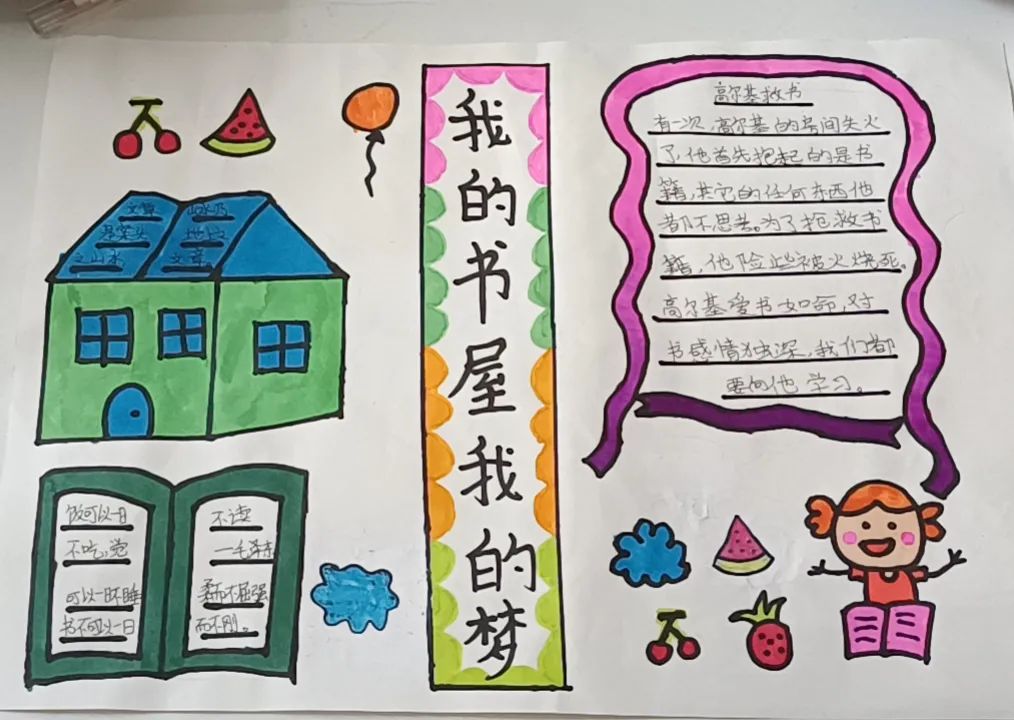 我的书屋我的梦
高尔基救书
有一次,高尔基的房间失火
了,他首先抱起的是书
籍,其它的任何东西他
都不思考。为了抢救书
籍,他险些被火烧死。
高尔基爱书如命,对
书感情独深,我们都
要向他学习。
文章
是案头
之山水,
山水乃
地上
文章。
饭可以一日
不吃,觉
可以一日不睡
书不可以一日
不读
—毛泽东
柔而不屈强
而不刚。